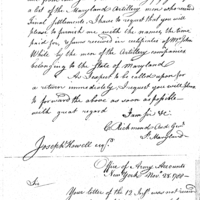 a list of the Maryland Artillery who
final settlements. I have to request that you will
please to furnish me, with the names, the time
paid for,
While by the men of the Artillery companies
belonging to the State of Maryland.
As I expect to be called upon for
a return immediately, I request you will please
to forward the above as soon as possible
with great regard
I am Sir &c
C. Richmond
Maryland
Joseph Howell esqr.
Office of Army Accounts
New York Novr. 28. 1788
Sir
Your letter of the 12 was not